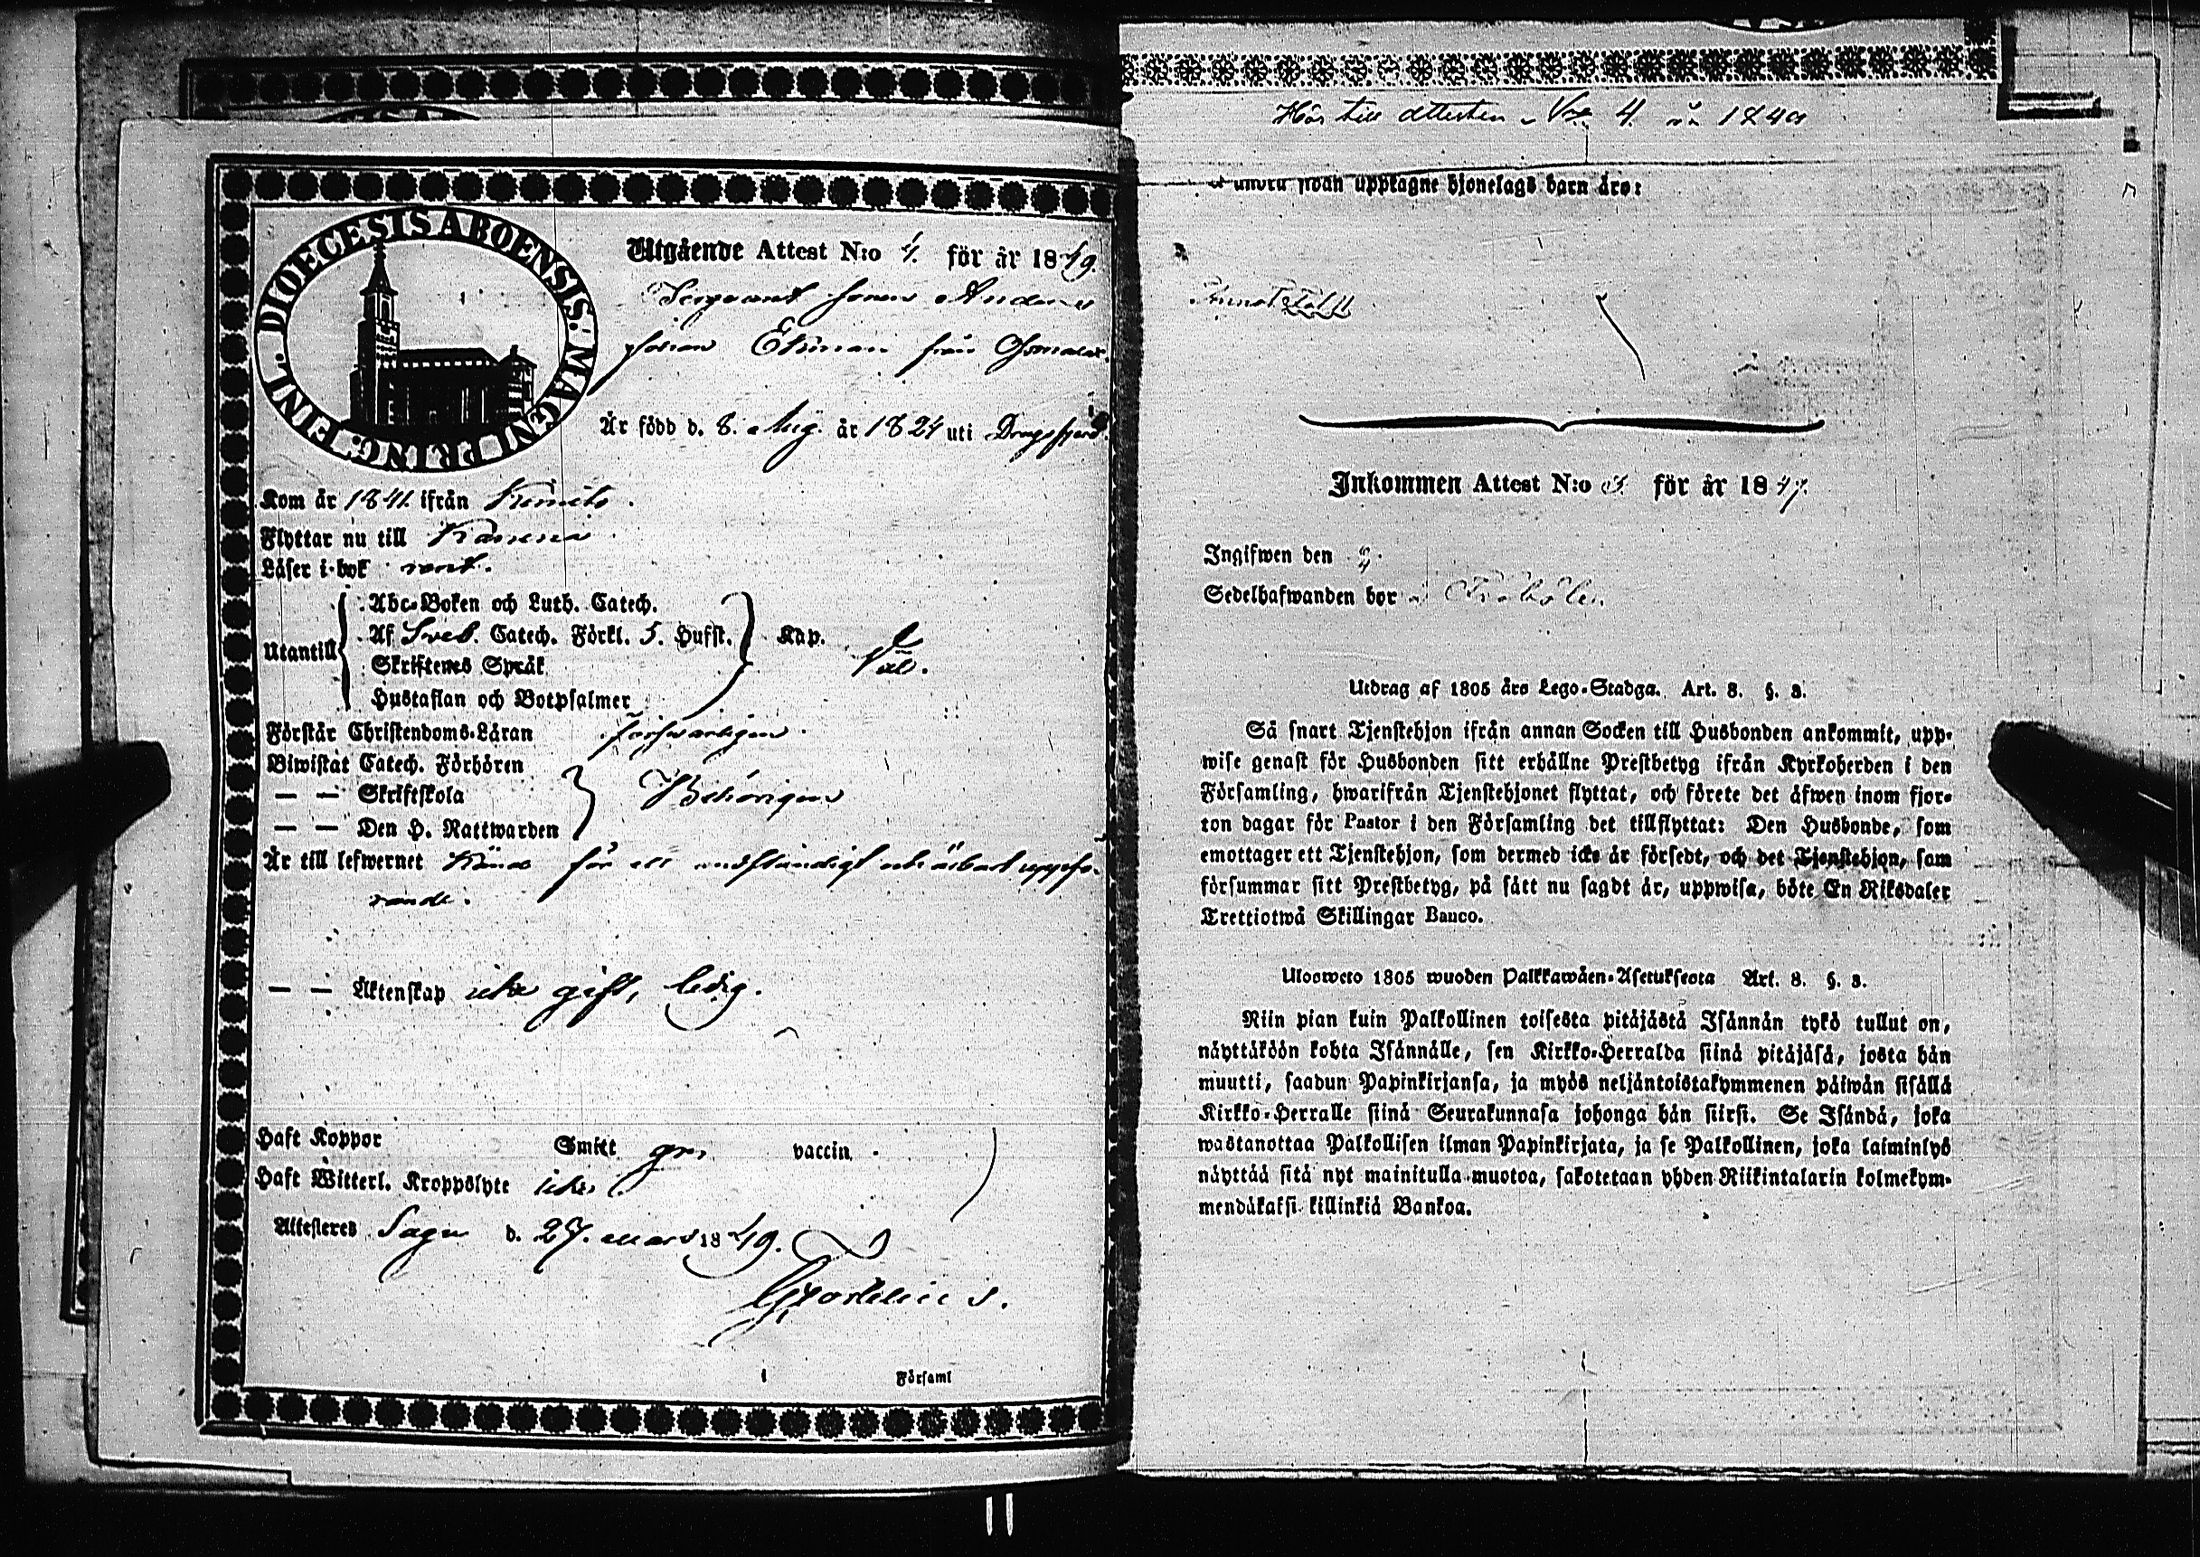 DIOECESIS ABOENSIS. MAGNI PRINC. FINL.
Utgående Attest N:o 4. för år 1849.
Sergeant
Johan Ekman från
Är född d. 8. Aug. år 1824 uti Dragsfjerd
Kom år 1841 ifrån Kimito.
Flyttar nu till
Läser i bok
Utantill
Abc-Boken och Luth. Catech.
Af Sveb. Catech. Förkl. 5. Hufst. Kap.
Skriftenes Språk
Hustaflan och Botpsalmer
Väl.
Förstår Christendoms-Läran försvarligen.
Biwistat Catech. Förhören
— — Skriftskola
— — Den H. Nattwarden
Behörigen
Är till lefwernet känd för ett anständigt och ärbart uppfö-
rande.
— — Äktenskap icke gift, ledig.
Haft Koppor Smitt vaccin.
Haft Witterl. Kroppslyte icke
Attesteras Sagu d. 27. Mars 1849.
i Församl
Hör till attesten No 4. 1849
å andra sidan upptagne hjonelags barn äro:
Inkommen Attest N:o för år 1847.
Ingifwen den
Sedelhafwanden bor
Utdrag af 1805 års Lego-Stadga. Art. 8. §. 3.
Så snart Tjenstehjon ifrån annan Socken till Husbonden ankommit, upp-
wise genast för Husbonden sitt erhållne Prestbetyg ifrån Kyrkoherden i den
Församling, hwarifrån Tjenstehjonet flyttat, och förete det äfwen inom fjor-
ton dagar för Pastor i den Församling det tillflyttat: Den Husbonde, som
emottager ett Tjenstehjon, som dermed icke är försedt, och det Tjenstehjon, som
försummar sitt Prestbetyg, på sätt nu sagdt är, uppwisa, böte En Riksdaler
Trettiotwå Skillingar Banco.
Ulosweto 1805 wuoden Palkkawäen-Asetuksesta Art. 8. §. 3.
Niin pian kuin Palkollinen toisesta pitäjästä Isännän tykö tullut on,
näyttäköön kohta Isännälle, sen Kirkko-Herralda siinä pitäjäsä, josta hän
muutti, saadun Papinkirjansa, ja myös neljäntoistakymmenen päiwän sisällä
Kirkko-Herralle siinä Seurakunnasa johonga hän siirsi. Se Isändä, joka
wastanottaa Palkollisen ilman Papinkirjata, ja se Palkollinen, joka laiminlyö
näyttää sitä nyt mainitulla muotoa, sakotetaan yhden Riikintalarin kolmekym-
mendäkaksi killinkiä Bankoa.